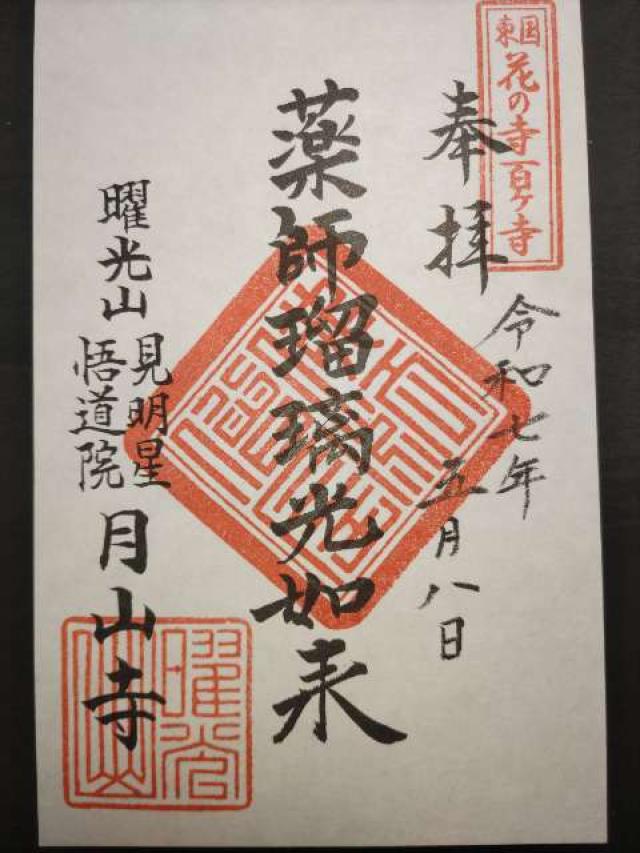 東国
花の寺百ヶ寺
奉拝
令和七年
五月八日
薬師瑠璃光如来
曜光山
見明星
悟道院
月山寺